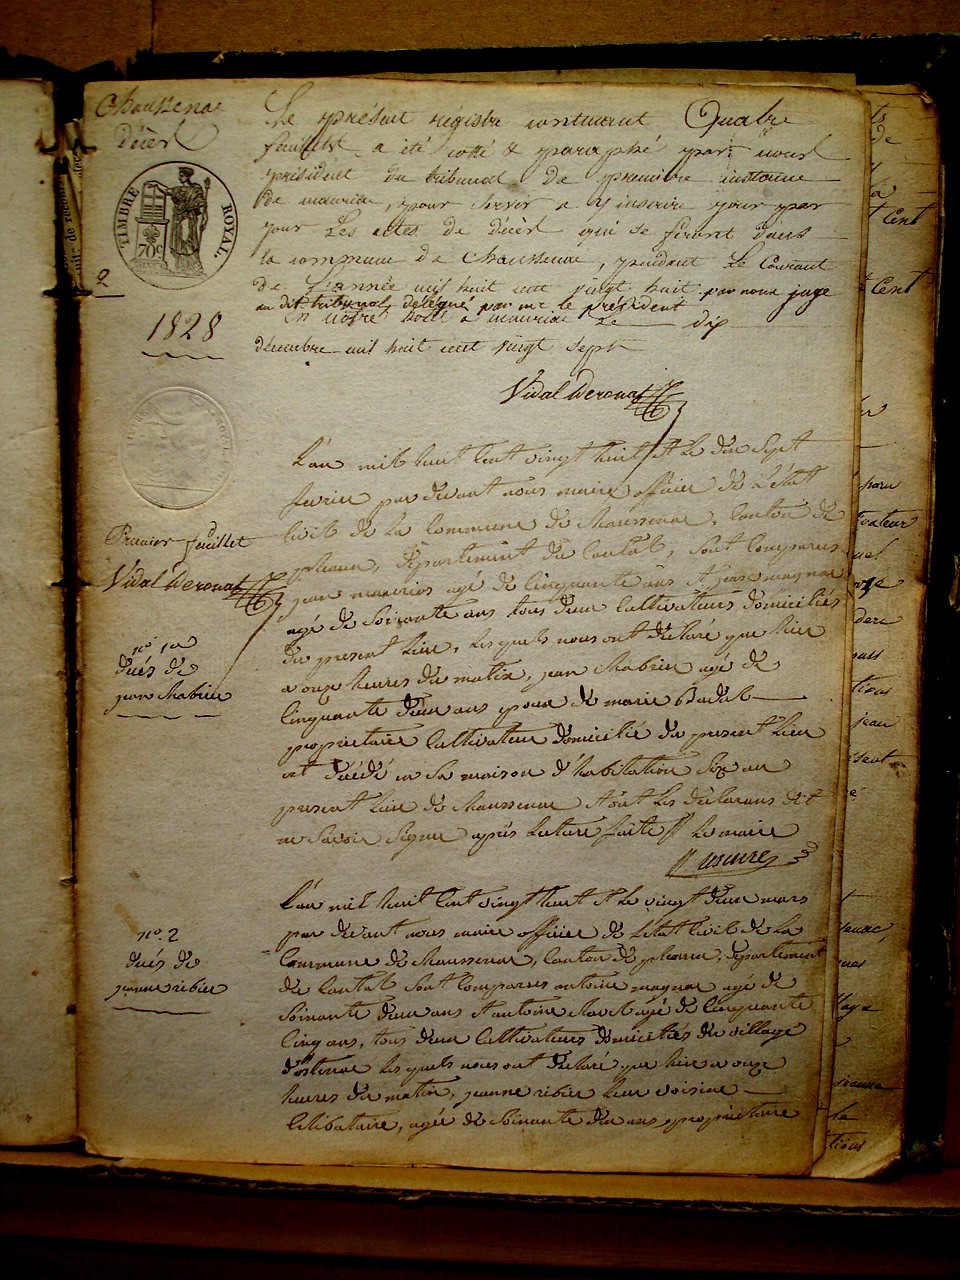 Chaussenac
décès
TIMBRE ROYAL.
70c
2
1828
Le présent régistre contenant Quatre
feuillets a été cotté & paraphé par nous
président du tribunal de première instance
de mauriac, pour servir a y inscrire jour par
jour Les actes de décès qui se feront dans
la commune de Chaussenac, pendant Le Courant
de L'année mil huit cent vingt huit. par nous juge
au dit tribunal délégué par mr le président
En notre hotel à mauriac Le dix
décembre mil huit cent vingt sept
Vidal Deronat
Premier feuillet
Vidal Deronat
L'an mil huit Cent vingt huit et Le dix Sept
fevrier par devant nous maire officier de L'état
Civil de La Commune de Chaussenac, Canton de
pleaux, département du Cantal, Sont Comparus
jean agé de Cinquante ans et jean magnac
agé de Soixante ans tous deux Cultivateurs domiciliés
du present Lieu, Les quels nous ont déclaré que hier
a onze heures du matin, jean Chabrier agé de
Cinquante deux ans epoux de marie Badal
proprietaire Cultivateur domicilié du present Lieu
est décédé en Sa maison d'habitation Size au
present Lieu de Chaussenac et ont Les déclarans dit
ne Savoir Signer après Lecture faite Le maire
n° 1er
décés de
jean Chabrier
L'an mil huit Cent vingt huit et Le vingt deux mars
par devant nous maire officier de L'état Civil de La
Commune de Chaussenac, Canton de pleaux, département
du Cantal Sont Comparus antoine magnac agé de
Soixante deux ans et antoine agé de Cinquante
Cinq ans, tous deux Cultivateurs domiciliés du village
d'ostenac Les quels nous ont déclaré que hier a onze
heures du matin, jeanne ribier Leur voisine
Célibataire, agée de Soixante dix ans proprietaire
n° 2
décés de
jeanne ribier